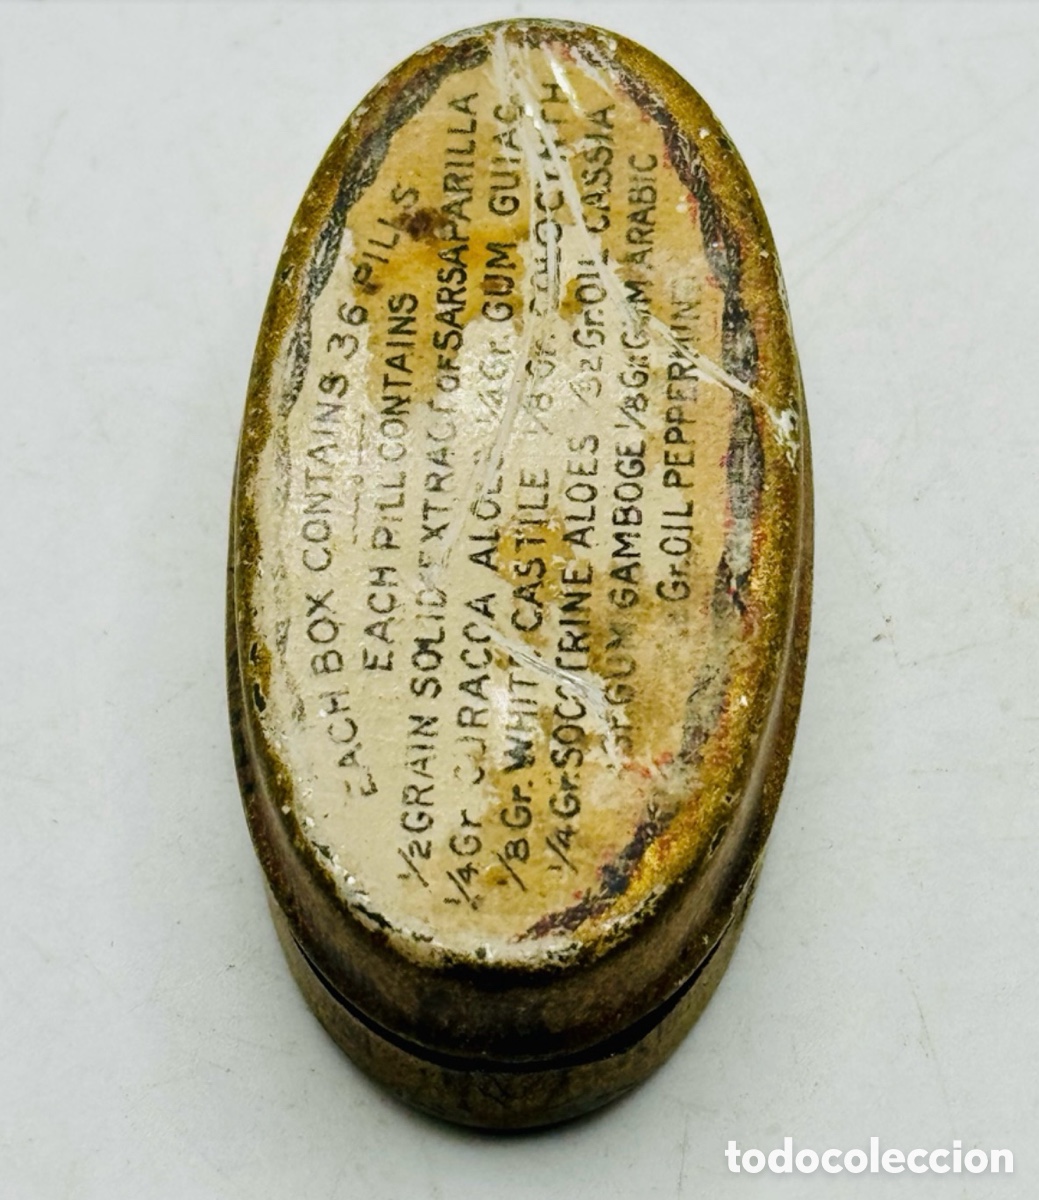 EACH BOX CONTAINS 36 PILLS
EACH PILL CONTAINS
1/2 GRAIN SOLID EXTRACT OF SARSAPARILLA
1/4 Gr. CURACOA ALOES 1/4 Gr. GUM GUIAC
1/8 Gr. WHITE CASTILE 1/8 Gr. COLOCYNTH
1/4 Gr. SOCOTRINE ALOES 1/32 Gr. OIL CASSIA
Gr. GUM GAMBOGE 1/8 Gr. GUM ARABIC
Gr. OIL PEPPERMINT
todocoleccion